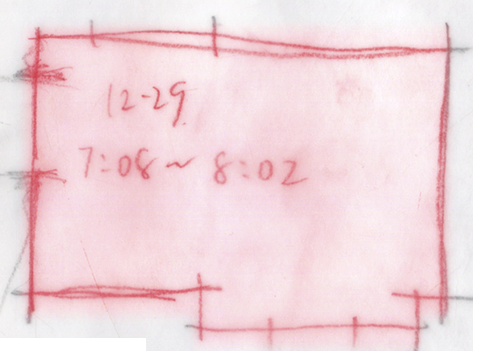 12-29
7:08~8:02